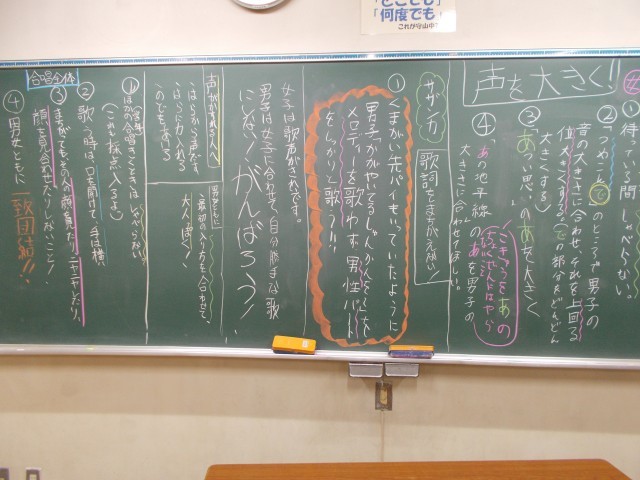 どこでも」
「何度でも」
これが守山中
声を大きく!!
①待っている間しゃべらない。
②「つややん で」のところで男子の
音の大きさに合わせ、それを上回る
位大きくする。(での部分をどんどん
大きくする)
③「あつい思い」のあを大きく
④「あの地平線」のあを男子の
大きさに合わせてほしい。
サザンカ
歌詞をまちがえない!
①くまがい先パイもいっていたように
男子「かがやいてる
メロディーを歌わず、男性パート
をしっかりと歌う!!
女子は歌声がきれいです。
男子は女子に合わせて、自分勝手な歌
にしない!がんばろう!
声がかすれる人へ
はらから声だす。
はらに力入れる
のどをあける
男女ともに
、最初の入り方を合わせて、
大人っぽく!
合唱全体
①ほかの合唱のときは、しゃべらない。
(これも採点に入るよ)
②歌う時は、口を開けて、手は横
③まちがえてもその人の方を見たり、ニヤニヤしたり、
顔を見合わせたりしないこと!
④男女ともに、一致団結!!